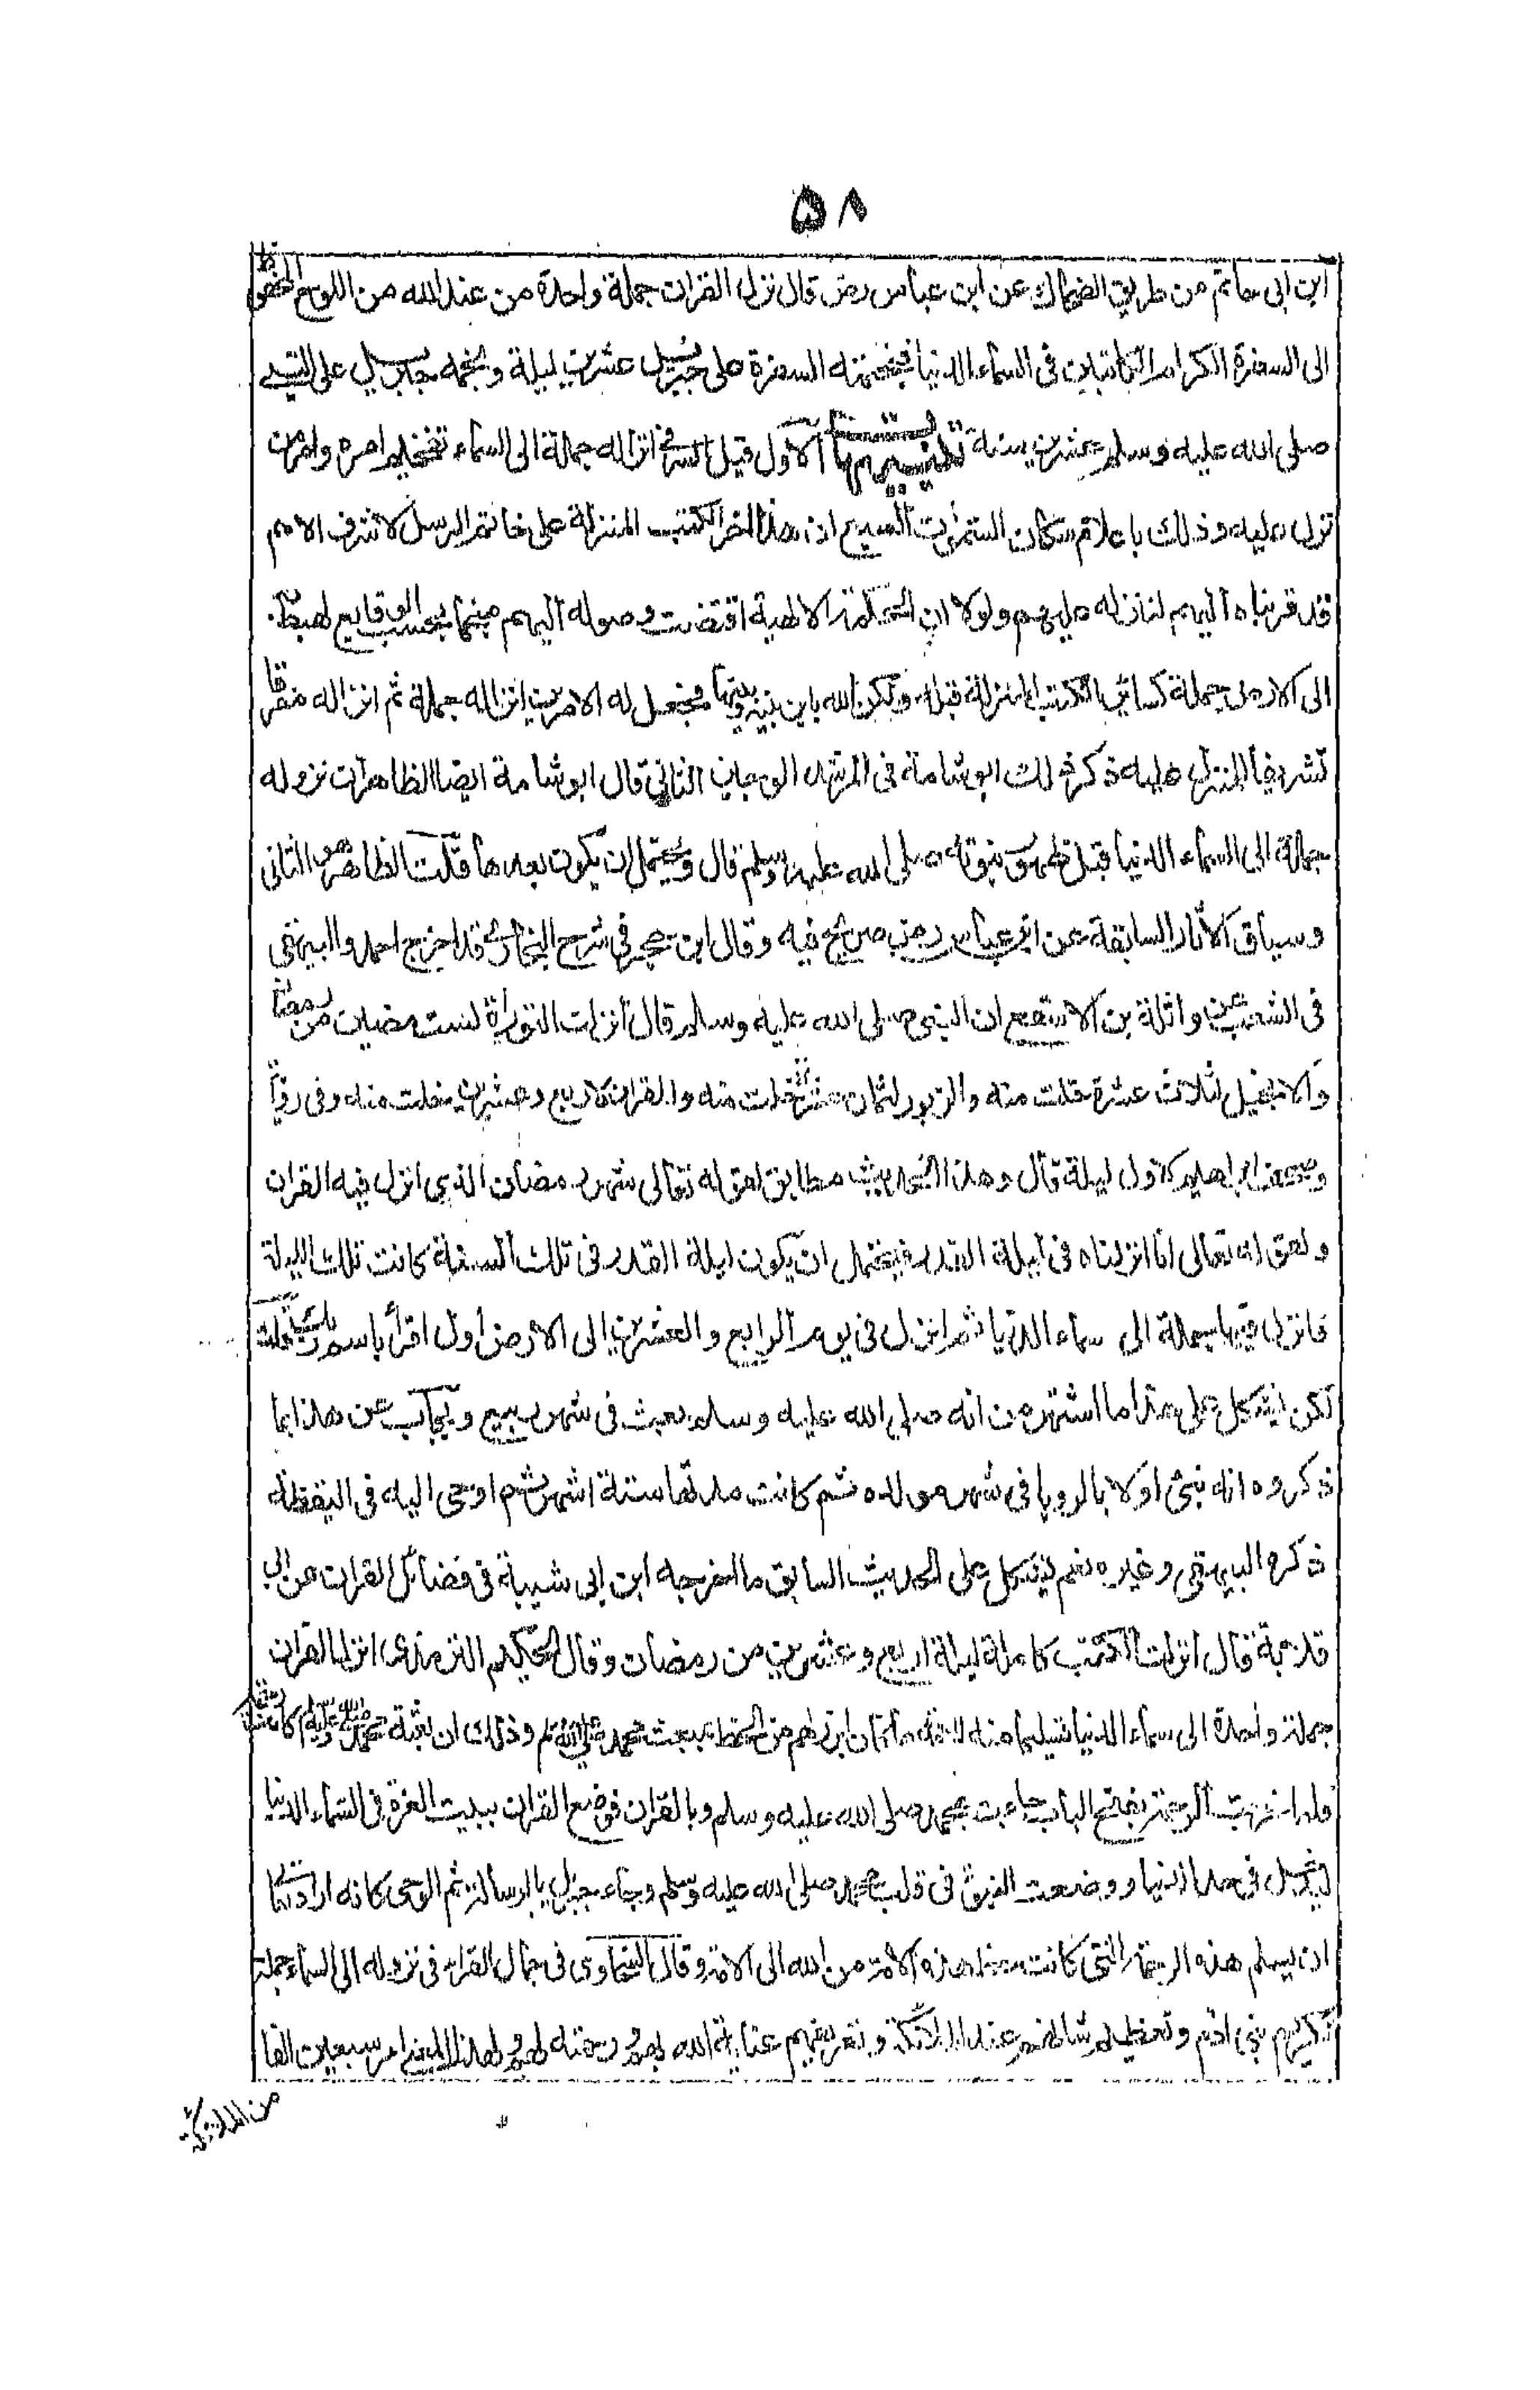 ٥٨
ابن ابى حاتم من طريق الضحاك عن ابن عباس رض قال نزل القران جملة واحدة من عند الله من اللوح المحفوظ
الى السفرة الكرام الكاتبين فى السماء الدنيا فنجمته السفرة على جبريل عشرين ليلة ونجمه جبريل على النبى
صلى الله عليه وسلم عشرين سنة تنبيهات الاول قيل السر فى انزاله جملة الى السماء تفخيم امره وامر من
نزل عليه وذلك باعلام سكان السموات السبع ان هذا اخر الكتب المنزلة على خاتم الرسل لاشرف الامم
قد قربناه اليهم لننزله عليهم ولولا ان الحكمة الالهية اقتضت وصوله اليهم منجما بحسب الوقايع لهبط
الى الارض جملة كسائر الكتب المنزلة قبله ولكن الله باين بينه وبينها فجعل له الامرين انزاله جملة ثم انزاله مفرقا
تشريفا للمنزل عليه ذكر ذلك ابو شامة فى المرشد الوجيز الثانى قال ابو شامة ايضا الظاهر ان نزوله
جملة الى السماء الدنيا قبل ظهور نبوته صلى الله عليه وسلم قال ويحتمل ان يكون بعدها قلت الظاهر هو الثانى
وسياق الاثار السابقة عن ابن عباس رض صريح فيه وقال ابن حجر فى شرح البخارى قد اخرج احمد والبيهقى
فى الشعب عن واثلة بن الاسقع ان النبى صلى الله عليه وسلم قال انزلت التوراة لست مضين من رمضان
والانجيل لثلاث عشرة خلت منه والزبور لثمان عشرة خلت منه والقران لاربع وعشرين خلت منه وفى رواية
وصحف ابراهيم لاول ليلة قال وهذا الحديث مطابق لقوله تعالى شهر رمضان الذى انزل فيه القران
ولقوله تعالى انا انزلناه فى ليلة القدر فيحتمل ان يكون ليلة القدر فى تلك السنة كانت تلك الليلة
فانزل فيها جملة الى سماء الدنيا ثم انزل فى يوم الرابع والعشرين الى الارض اول اقرأ باسم ربك قلت
لكن يشكل على هذا ما اشتهر من انه صلى الله عليه وسلم بعث فى شهر ربيع ويجاب عن هذا بما
ذكروه انه نبئ اولا بالرويا فى شهر مولده ثم كانت مدتها ستة اشهر ثم اوحى اليه فى اليقظة
ذكره البيهقى وغيره نعم يشكل على الحديث السابق ما اخرجه ابن ابى شيبة فى فضائل القران عن ابى
قلابة قال انزلت الكتب كاملة ليلة اربع وعشرين من رمضان وقال الحكيم الترمذى انزل القران
جملة واحدة الى سماء الدنيا تسليما منه للامة ما كان ابرز لهم من الحظ بمبعث محمد صلى الله عليه وسلم وذلك ان بعثة محمد صلى الله عليه وسلم كانت رحمة
فلما خرجت الرحمة بفتح الباب جاءت بمحمد صلى الله عليه وسلم وبالقران فوضع القران ببيت العزة فى السماء الدنيا
ليدخل فى حد الدنيا ووضعت النبوة فى قلب محمد صلى الله عليه وسلم وجاء جبريل بالرسالة ثم الوحى كانه اراد تعالى
ان يسلم هذه الرحمة التى كانت حظ هذه الامة من الله الى الامة وقال السخاوى فى جمال القراء فى نزوله الى السماء جملة
تكريم بنى ادم وتعظيم شانهم عند الملائكة وتعريفهم عناية الله بهم ورحمته لهم ولهذا المعنى امر سبعين الفا
من الملائكة